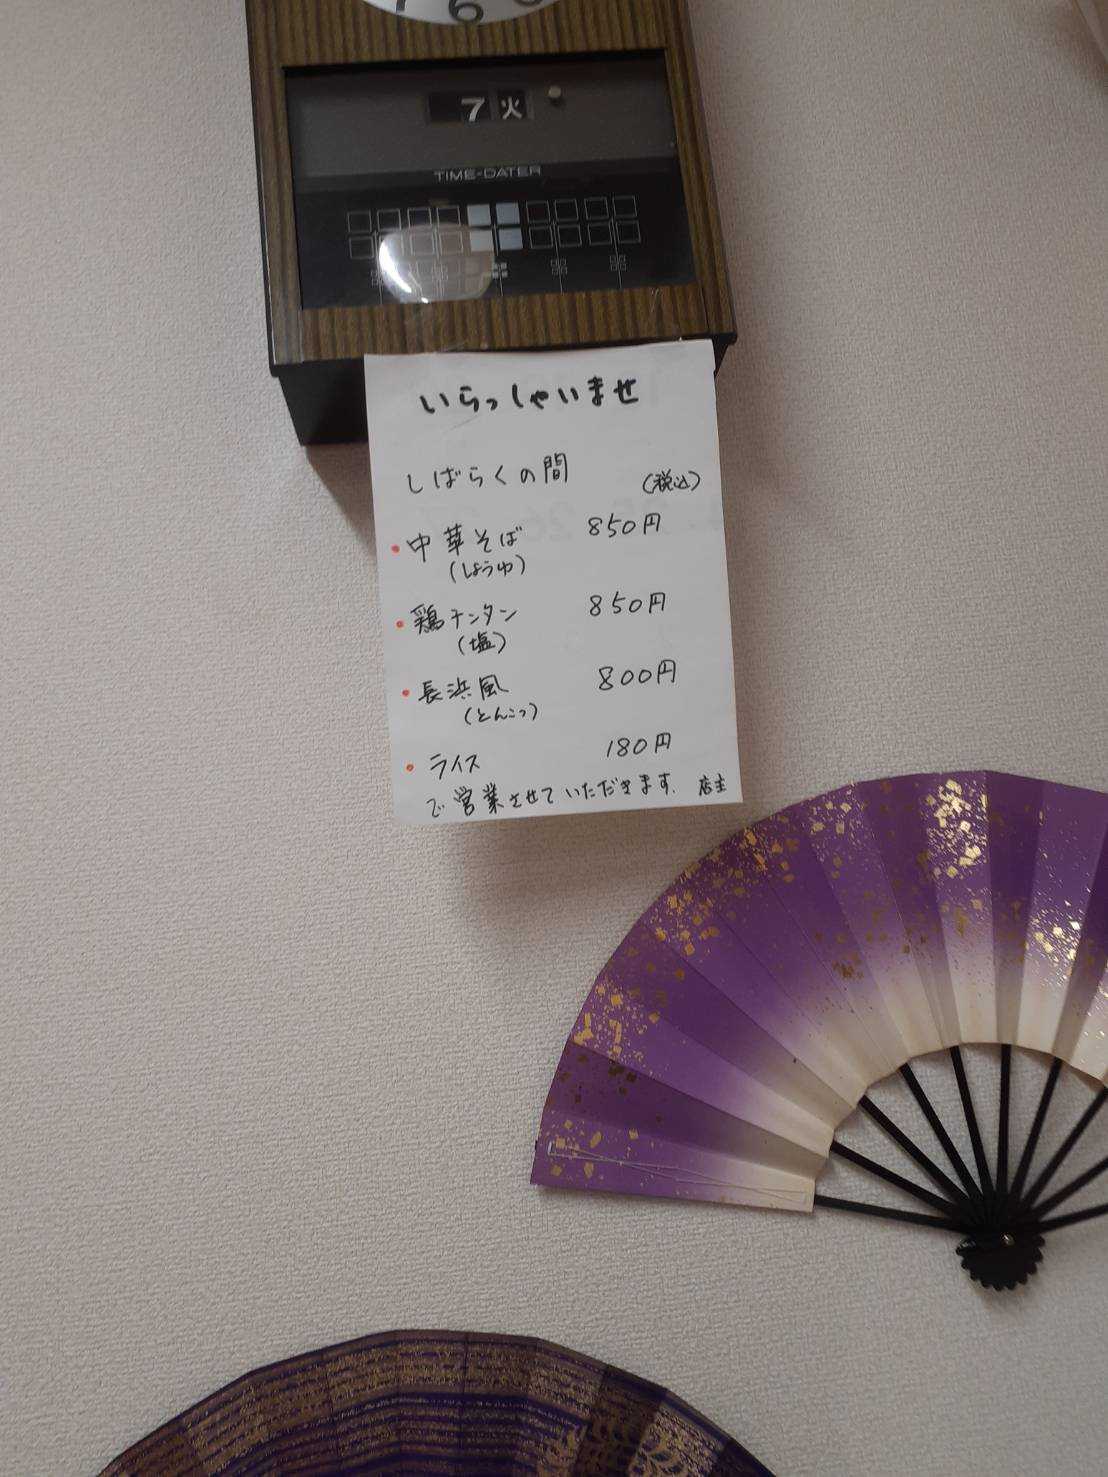 6
7 火
TIME-DATER
いらっしゃいませ
しばらくの間 (税込)
・中華そば 850円
(しょうゆ)
・鶏チンタン 850円
(塩)
・長浜風 800円
(とんこつ)
・ライス 180円
で営業させていただきます. 店主